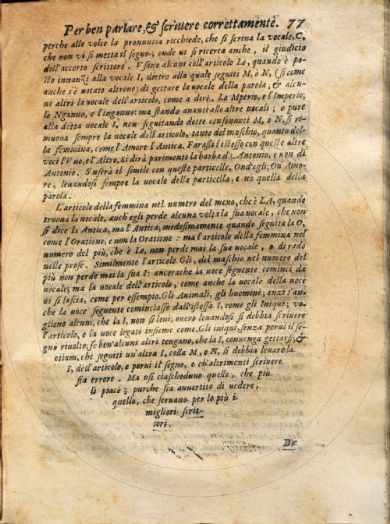 Per ben parlare, & scriuere correttamente. 77
perche alle volte la pronuncia richiede, che si scriua la vocale. E,
che non vi si metta il segno; onde ui si ricerca anche, il giudicio
dell'accorto scrittore. V sano alcuni coll'articolo Lo, quando è po-
sto innanzi alla vocale I, dietro alla quale seguiti M, ò N, (si come
anche s'è notato altroue) di gettare la uocale della parola; & al-
cuni altri la uocale dell'articolo, come a dire. Lo Mperio, e l'Imperio,
Lo Nganno, e l'inganno: ma stando auanti alle altre uocali; o pure
alla detta uocale I, non seguitando dette consonanti M, o N, si ri-
muoua sempre la uocale dell'articolo, tanto del maschio, quanto del-
la femmina, come l'Amore l'Antica. Farassi l'istesso con queste altre
voci l'Vno, e l'Altro, si dirà parimente la barba d'Antonio, e non di
Antonio. S'usera il simile con queste particelle, Ond'egli, Ou'Amo-
re, leuandosi sempre la uocale della particella, e nò quella della
parola.
L'articolo della femmina nel numero del meno, che è LA, quando
truoua la uocale, anch'egli perde alcuna volta la sua uocale, che non
si dice la Antica, ma l'Antica, medesimamente quando seguita la O,
come l'Oratione, e non la Oratione: ma l'articolo della femmina nel
numero del più, che è Le, non perde mai la sua uocale, o di rado
nelle prose. Similmente l'articolo Gli, del maschio nel numero del
più non perde mai la sua I: ancorache la uoce seguente cominci da
uocale; ma la uocale dell'articolo, come anche la uocale della uoce
ui si lascia, come per essempio. Gli Animali, gli huomini; anzi s'an-
che la uoce seguente cominciasse dall'istessa I, come gli iniqui; vo-
gliono alcuni, che la I, non si leui; ouero leuandosi si debbia scriuere
l'articolo, e la uoce legati insieme come. Gli iniqui, senza porui il se-
gno riuolto; se ben'alcuni altri tengano, che la I, conuenga gettarsi, &
etiam, che seguiti un'altra I, colla M, o N, si debbia leuare la
I, dell'articolo, e porui il segno, e ch'altrimenti scriuere
sia errore. Ma usi ciascheduno quello, che più
li piace; purche sia auuertito di uedere,
quello, che seruano per lo più i
migliori scrit-
tori.
De